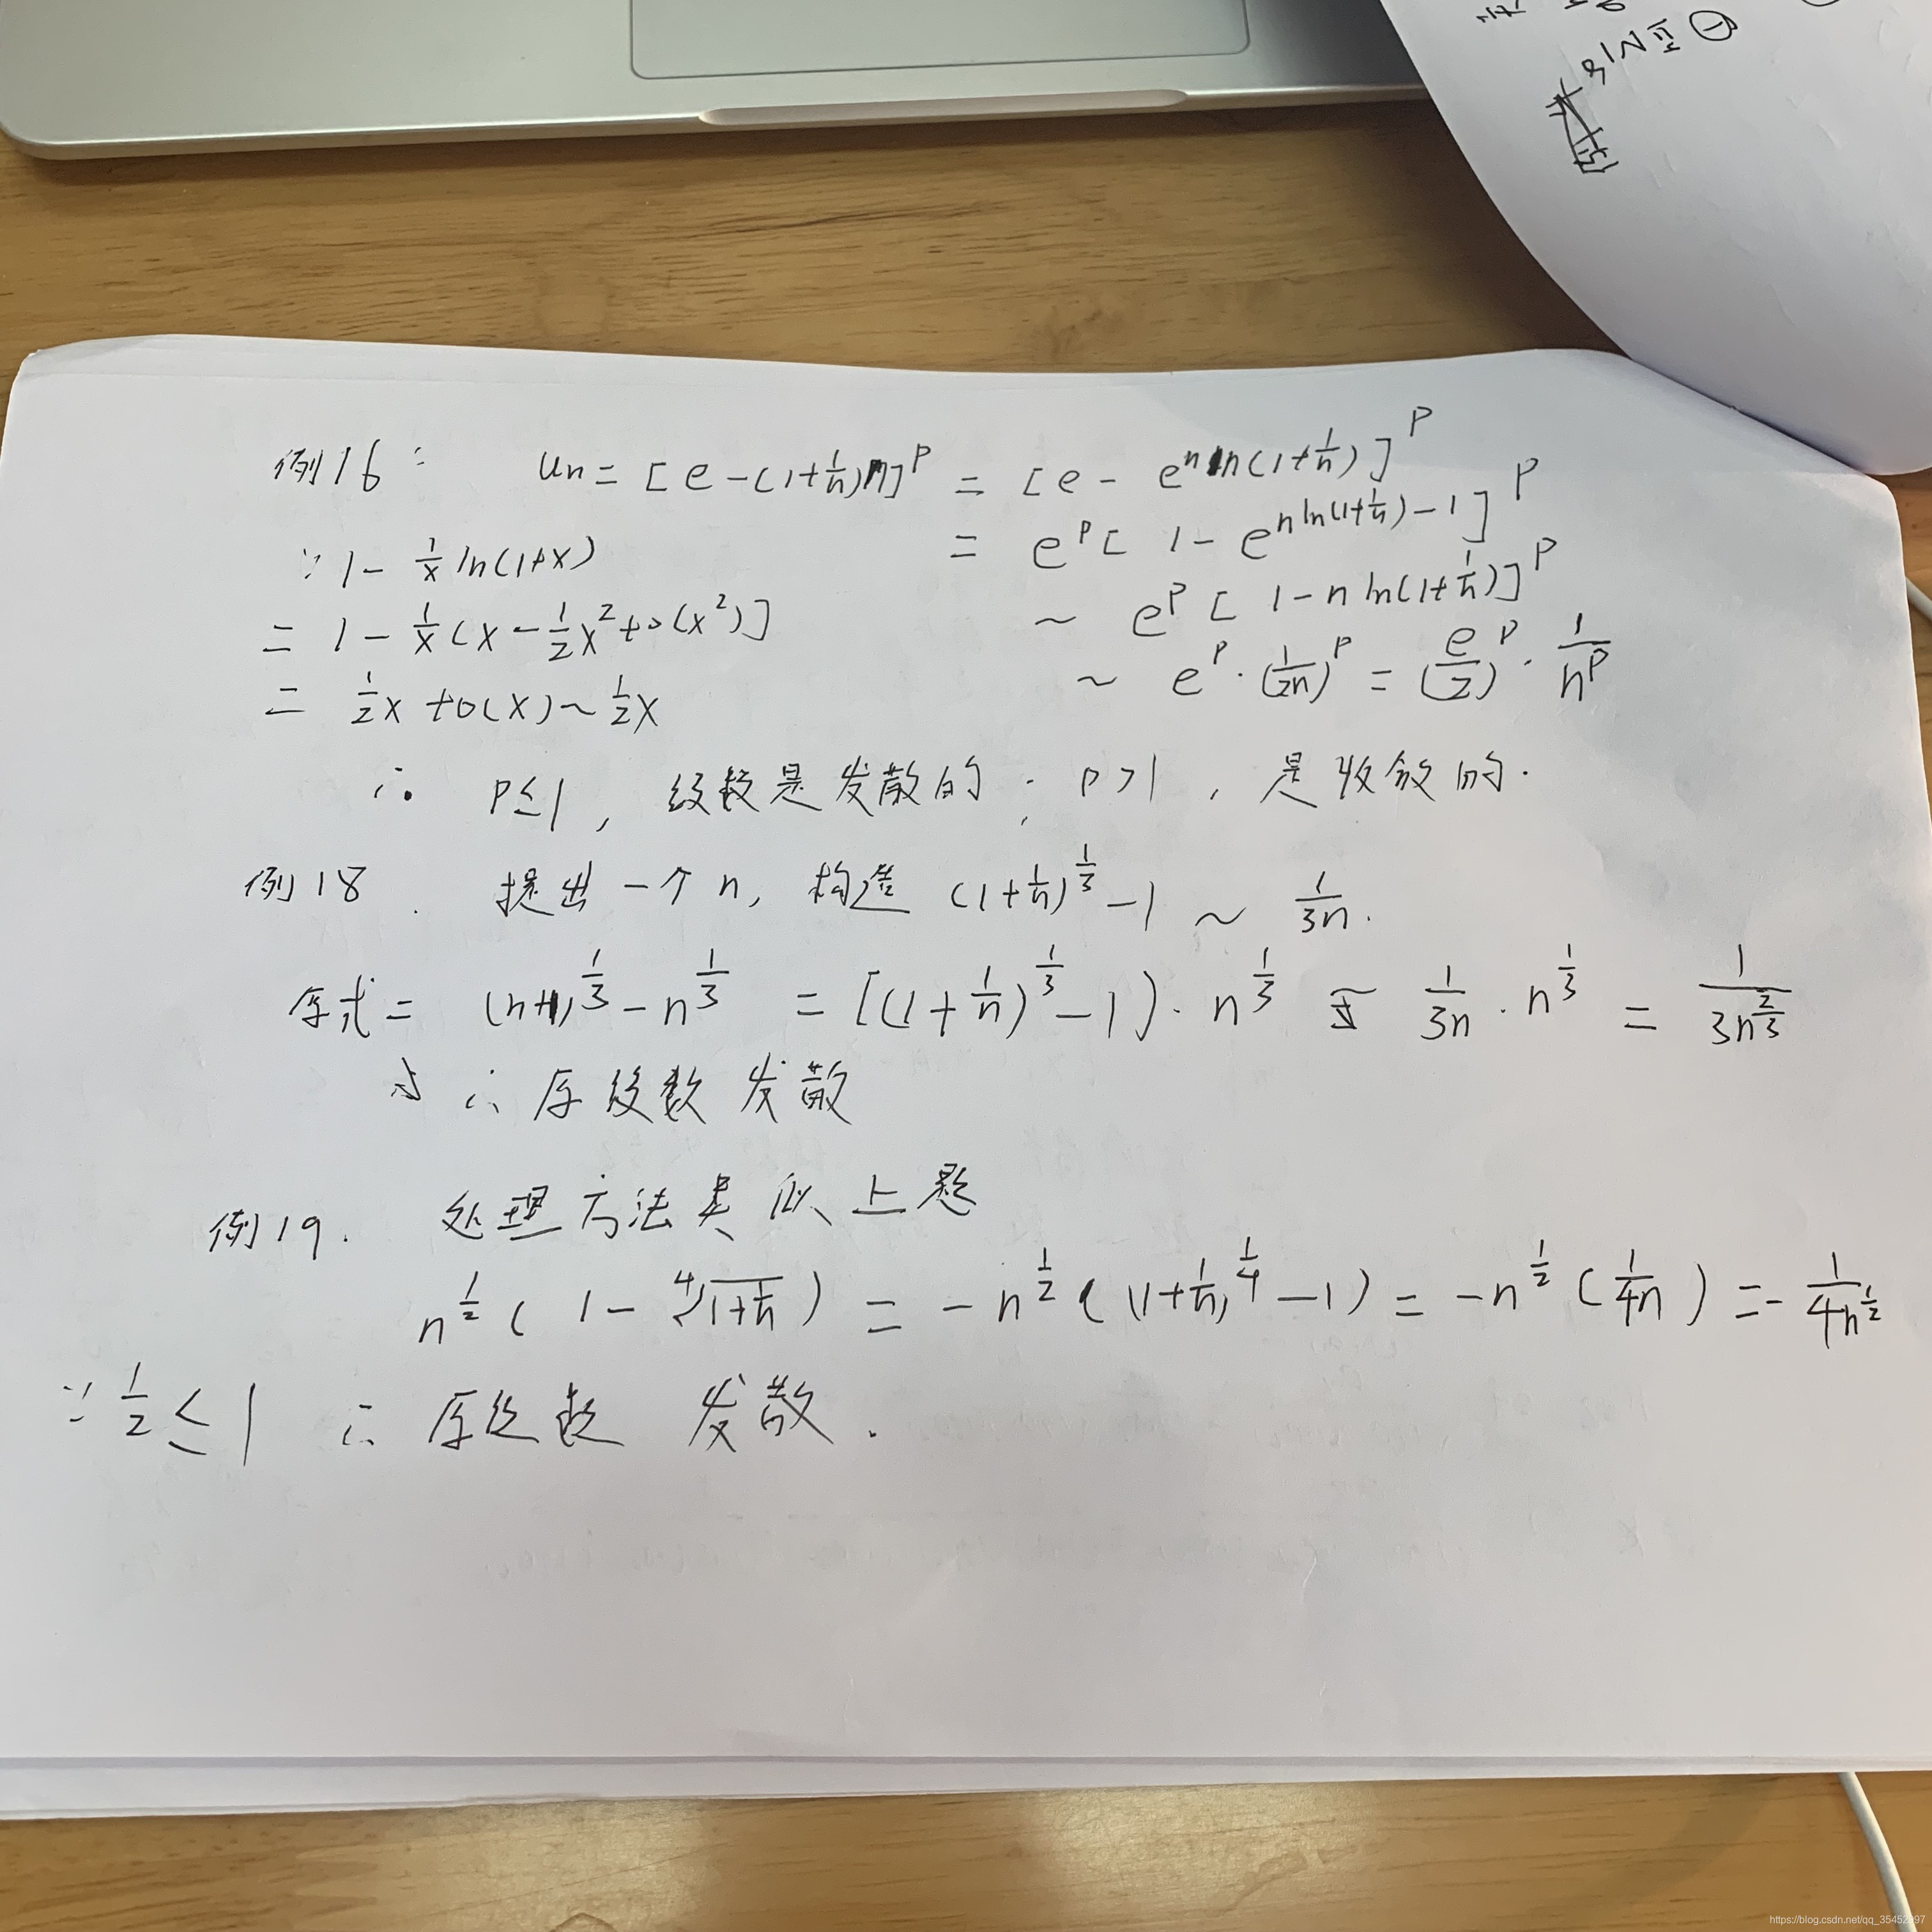 例16: Un = [e-(1+1/n)^n]^P = [e - e^{n ln(1+1/n)}]^P
= e^P [1 - e^{n ln(1+1/n) -1}]^P
∵ 1 - 1/x ln(1+x)
~ e^P [1-n ln(1+1/n)]^P
= 1 - 1/x (x - 1/2 x^2 + o(x^2)]
~ e^P · (1/2n)^P = (e/2)^P · 1/n^P
= 1/2 x + o(x) ~ 1/2 x
∴ P≤1, 级数是发散的; P>1, 是收敛的.
例18. 提出一个n, 构造 (1+1/n)^{1/3} -1 ~ 1/3n.
原式 = (n+1)^{1/3} - n^{1/3} = [(1+1/n)^{1/3} -1) · n^{1/3} 1/3n · n^{1/3} = 1/3n^{2/3}
∴ 原级数 发散
例19. 处理方法类似上题
n^{1/2} (1 - ∜(1+1/n)) = - n^{1/2} ((1+1/n)^{1/4} -1) = -n^{1/2} (1/4n) = - 1/4n^{1/2}
∵ 1/2 ≤ 1 ∴ 原级数 发散.
https://blog.csdn.net/qq_35452997